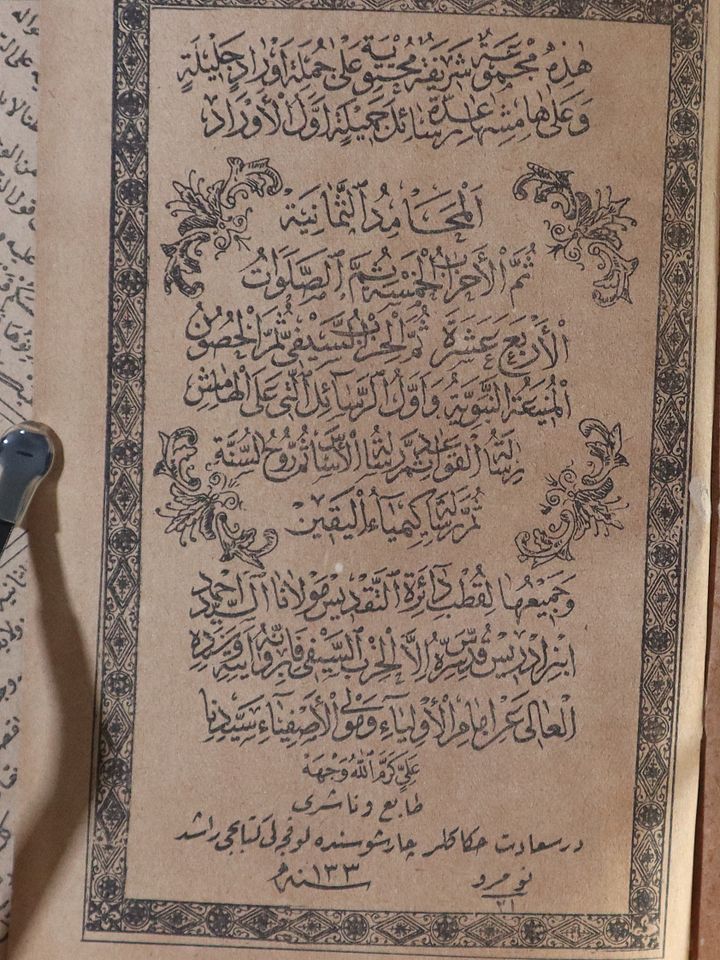 هٰذِهِ مَجْمُوعَةٌ شَرِيفَةٌ مُحْتَوِيَةٌ عَلَىٰ جُمْلَةِ اَوْرَادٍ جَلِيْلَةٍ
وَعَلَىٰ هَامِشِهَا عِدَّةُ رَسَائِلَ جَمِيْلَةٍ اَوَّلُ الْاَوْرَادِ
اَلْمَحَامِدُ الثَّمَانِيَةُ
ثُمَّ الْأَحْزَابُ الْخَمْسَةُ ثُمَّ الصَّلَوَاتُ
الْأَرْبَعَ عَشَرَةَ ثُمَّ الْحِزْبُ السَّيْفِيُّ ثُمَّ الْحُصُوْنُ
الْمَنِيْعَةُ النَّبَوِيَّةُ وَاَوَّلُ الرَّسَائِلِ الَّتِيْ عَلَى الْهَامِشِ
رِسَالَةُ الْقَوَاعِدِ ثُمَّ رِسَالَةُ الْأَسَاسِ ثُمَّ رُوْحُ السُّنَّةِ
ثُمَّ رِسَالَةُ كِيْمِيَاءِ الْيَقِيْنِ
وَجَمِيْعُهَا لِقُطْبِ دَائِرَةِ التَّقْدِيْسِ مَوْلَانَا السَّيِّدِ اَحْمَدَ
ابْنِ اِدْرِيْسَ قُدِّسَ سِرُّهُ اِلَّا الْحِزْبَ السَّيْفِيَّ فَاِنَّهُ يَرْوِيْهِ بِسَنَدِهِ
الْعَالِيْ عَنْ اِمَامِ الْأَوْلِيَاءِ وَمَوْلَى الْأَصْفِيَاءِ سَيِّدِنَا
عَلِيٍّ كَرَّمَ اللهُ وَجْهَهُ
طابع و ناشرى
درسعادت حكاكلر چارشوسنده لوفچه لى كتابجى راشد
نومرو ٢١
سنه ١٣٣